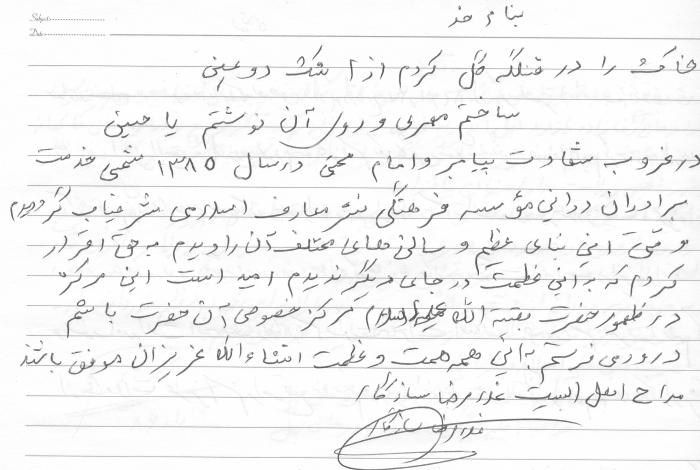 بنام خدا
Subject:
Date:
خاک را در قتلگه گل کردم از اشک دو عینی
ساختم مهری و روی آن نوشتم یا حسینی
در غروب شهادت پیامبر و امام مجتبی در سال ۱۳۸۵ شمسی خدمت
برادران در این مؤسسه فرهنگی نشر معارف اسلامی شرفیاب گردیدم
وقتی این بنای عظیم و سالن های مختلف آن را دیدم به حق اقرار
کردم که به این عظمت در جای دیگر ندیدم امید است این مرکز
در ظهور حضرت بقیه الله علیه السلام مرکز خصوصی آن حضرت باشم
درود می فرستم به این همه همت و عظمت انشاء الله عزیزان موفق باشند
مداح اهل البیت غلامرضا سازگار
غلامرضا سازگار